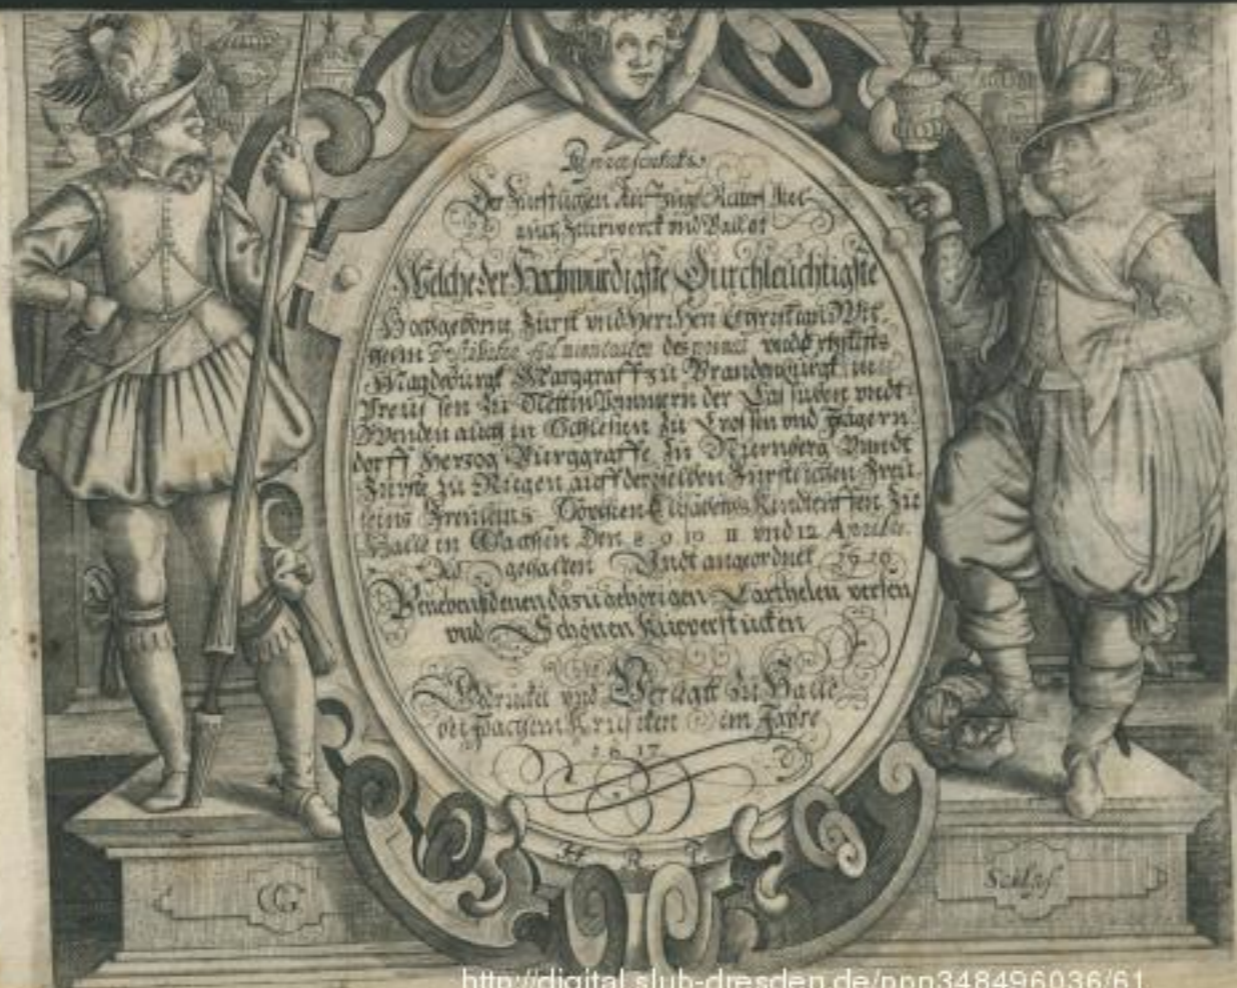 Repraesentatio
Der Fürstlichen Auffzüge Ritter
auch Feürwerck und Ballet
Welche der Hochwürdigste Durchleuchtigste
Hochgeborne Fürst und Herr Herr Christian Wil-
helm Postulirter Administrator des Primat undt Ertzstifts
Magdeburgk Marggraff zu Brandenburgk in
Preussen zu Stettin Pommern der Cassuben undt
Wenden auch in Schlesien zu Crossen und Jägern
dorff Herzog Burggraffe zu Nürnberg Vundt
Fürst zu Rügen auff derselden Fürstlichen Freu
leins Freuleins Elisabeths Kindteuffen zu
Halle in Sachsen Den 8 9 10 11 und 12
gehalten Undt angeordnet 1616
Benebenst denen dazu gehörigen Carthelen versen
und Schönen Kupverstucken
Gedruckt und Verlegtt zu Halle
bei Im Jahre
1617
H B T
CG
http://digital.slub-dresden.de/ppn348496036/61